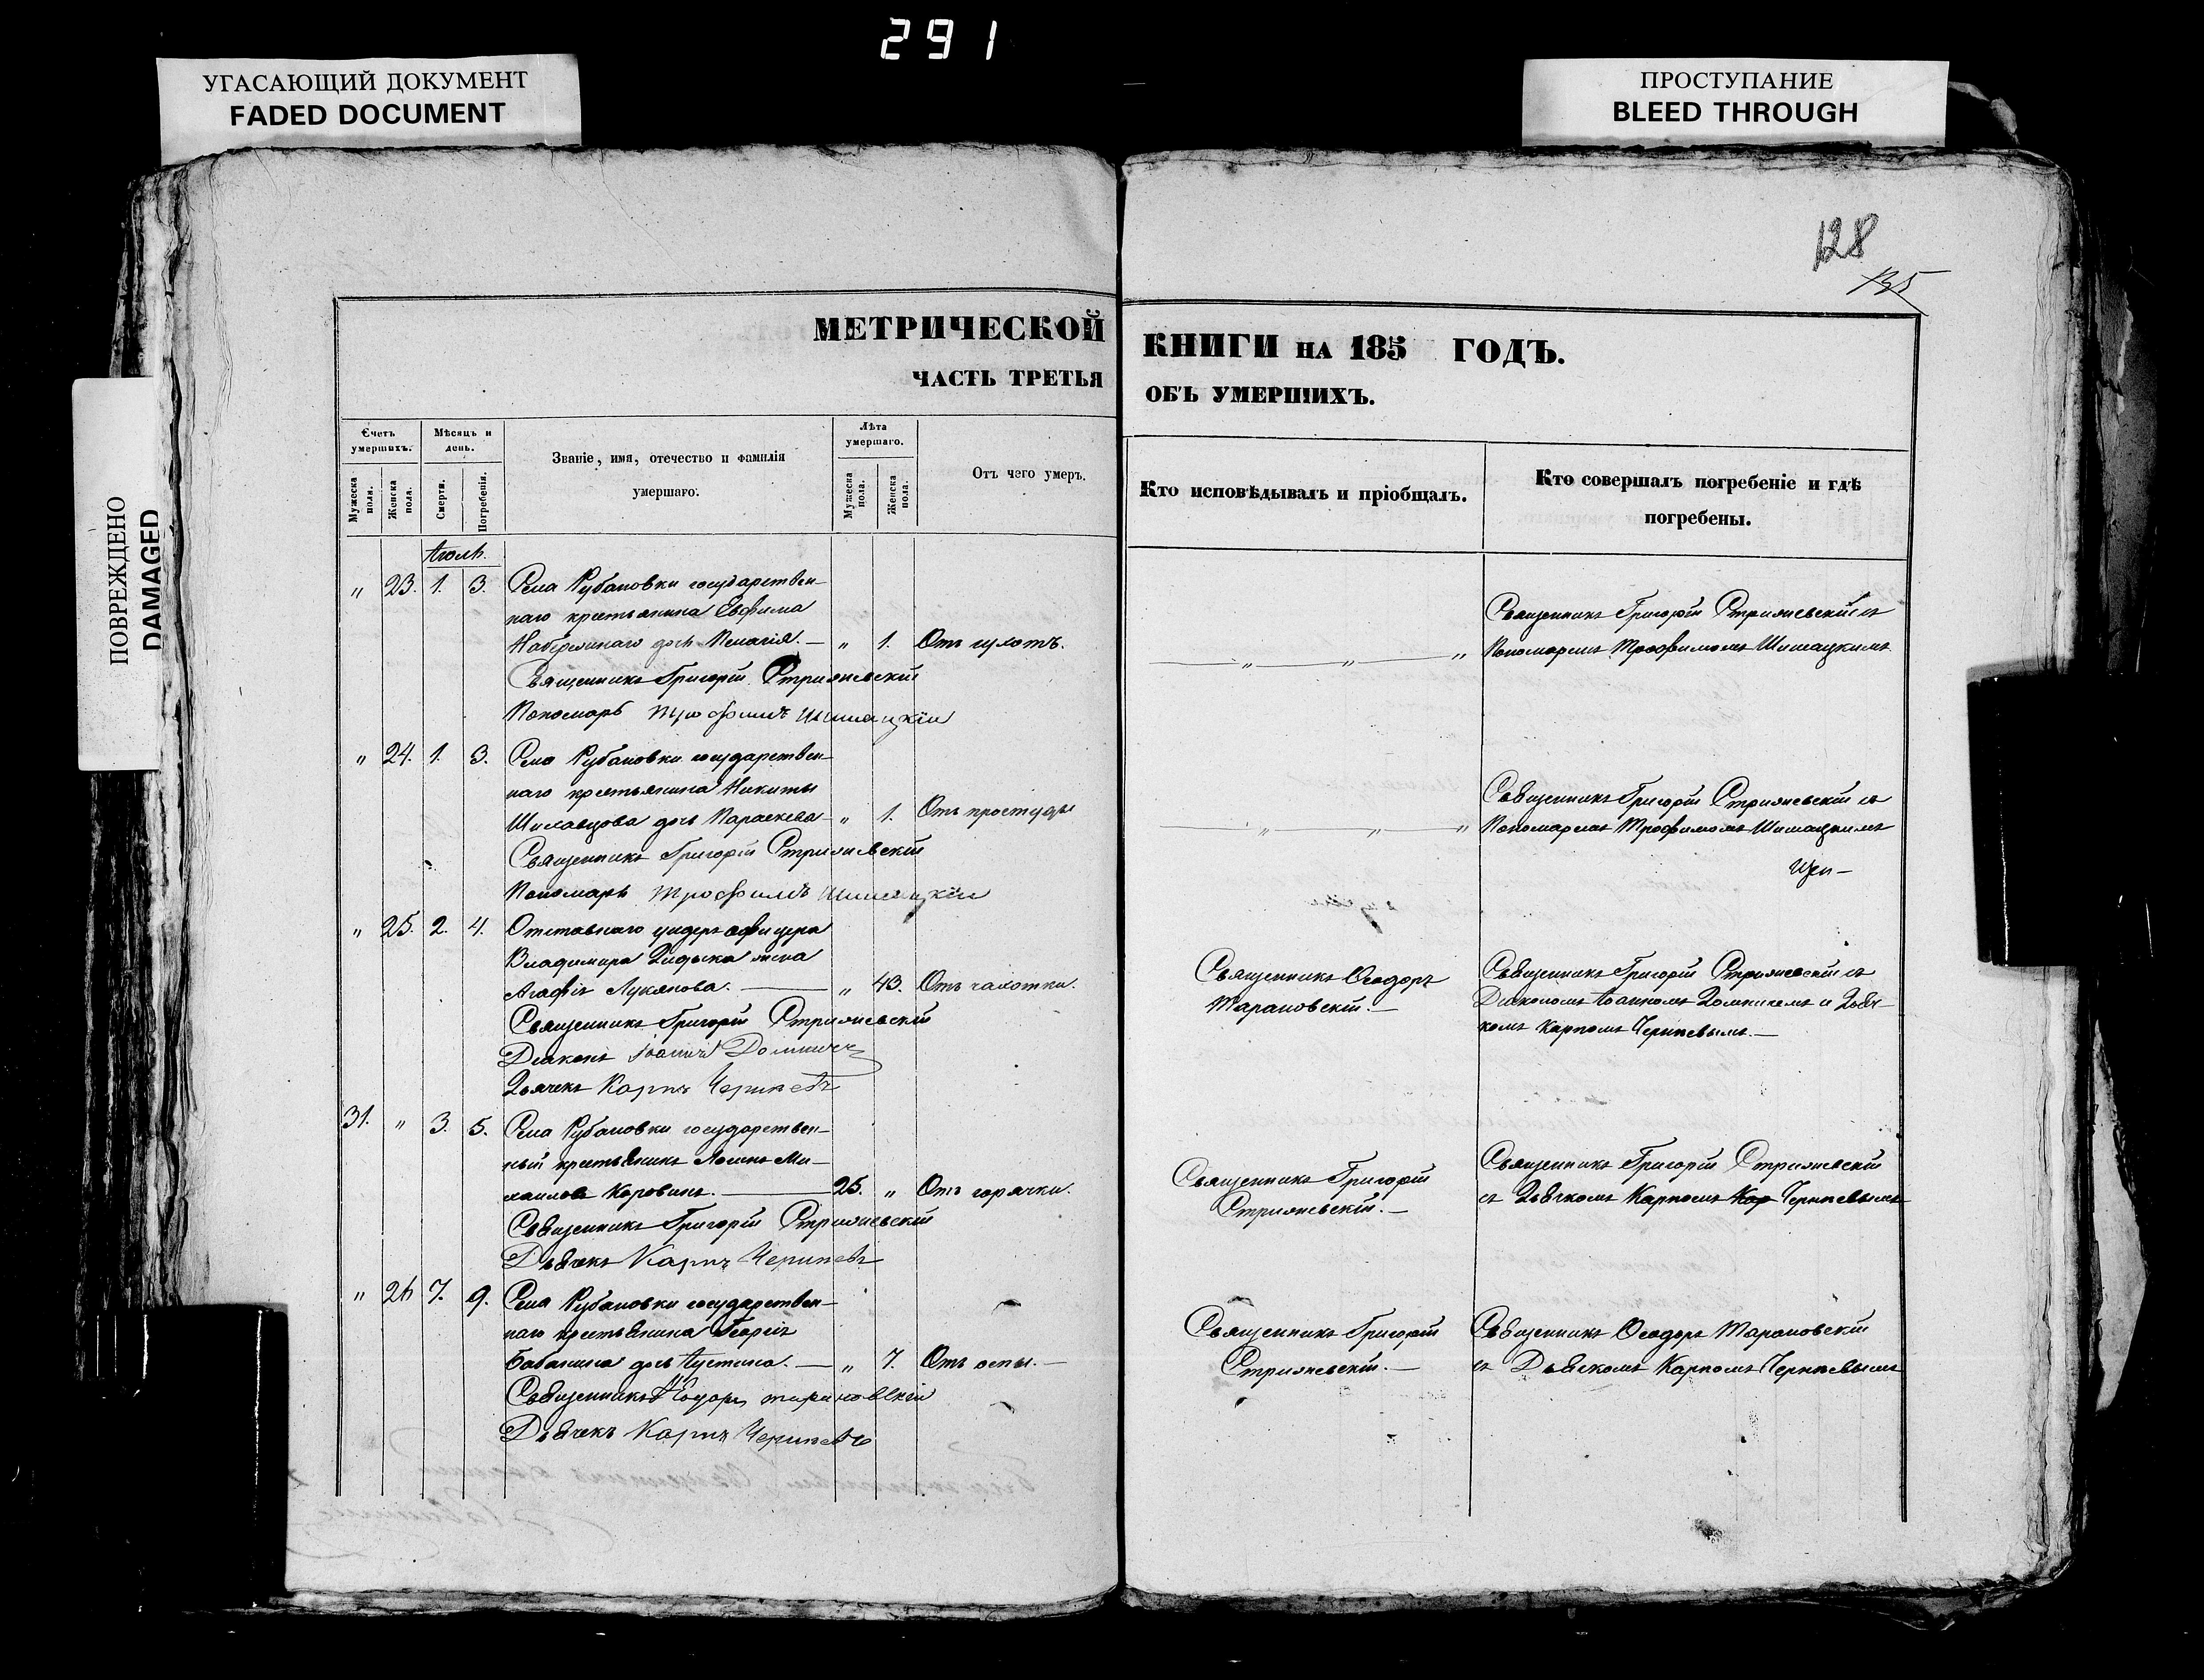 291
УГАСАЮЩИЙ ДОКУМЕНТ
FADED DOCUMENT
ПРОСТУПАНИЕ
BLEED THROUGH
ПОВРЕЖДЕНО
DAMAGED
128
135
МЕТРИЧЕСКОЙ
ЧАСТЬ ТРЕТЬЯ
КНИГИ НА 185 ГОДЪ.
ОБЪ УМЕРШИХЪ.
Счетъ умершихъ.
Мужеска пола.
Женска пола.
Мѣсяцъ и день.
Смерти.
Погребенія.
Званіе, имя, отечество и фамилія
умершаго.
Лѣта умершаго.
Мужеска пола.
Женска пола.
Отъ чего умеръ.
Кто исповѣдывалъ и пріобщалъ.
Кто совершалъ погребеніе и гдѣ
погребены.
Іюль.
" 23. 1. 3. Села Рубановки государствен-
наго крестьянина Евфима
дочь Пелагія. — " 1. Отъ
Священникъ Григорій Стрижевскій
Пономарь Трофимъ Шишацкій
Священникъ Григорій Стрижевскій съ
Пономаремъ Трофимомъ Шишацкимъ
" 24. 1. 3. Села Рубановки государствен-
наго крестьянина Никиты
дочь Параскева — " 1. Отъ простуды
Священникъ Григорій Стрижевскій
Пономарь Трофимъ Шишацкій
Священникъ Григорій Стрижевскій съ
Пономаремъ Трофимомъ Шишацкимъ
" 25. 2. 4. Отставнаго ундеръ офицера
Владимира жена
Агафія Лукянова. — " 43. Отъ чахотки.
Священникъ Григорій Стрижевскій
Діаконъ Іоаннъ
Дьячекъ Карпъ Черипевъ
Священникъ Ѳеодоръ
Тарановскій. —
Священникъ Григорій Стрижевскій съ
Діакономъ Іоанномъ и Дьяч-
комъ Карпомъ Черипевымъ. —
31. " 3. 5. Села Рубановки государствен-
ный крестьянинъ Ми-
хаиловъ Коровинъ. — 25. " Отъ горячки.
Священникъ Григорій Стрижевскій
Дьячекъ Карпъ Черипевъ
Священникъ Григорій
Стрижевскій. —
Священникъ Григорій Стрижевскій
съ Дьячкомъ Карпомъ Черипевымъ
" 26 7. 9. Села Рубановки государствен-
наго крестьянина Георгія
Бабанина дочь Іустина. — " 7. Отъ оспы. —
Священникъ Ѳеодоръ Тарановскій
Дьячекъ Карпъ Черипевъ
Священникъ Григорій
Стрижевскій. —
Священникъ Ѳеодоръ Тарановскій
съ Дьячкомъ Карпомъ Черипевымъ